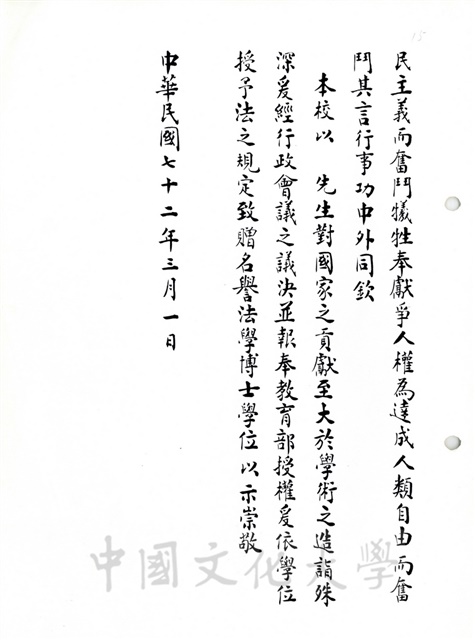 民主義而奮鬥犧牲奉獻爭人權為達成人類自由而奮
鬥其言行事功中外同欽
本校以 先生對國家之貢獻至大於學術之造詣殊
深爰經行政會議之議決並報奉教育部授權爰依學位
授予法之規定致贈名譽法學博士學位以示崇敬
中華民國七十二年三月一日
15
中國文化大學